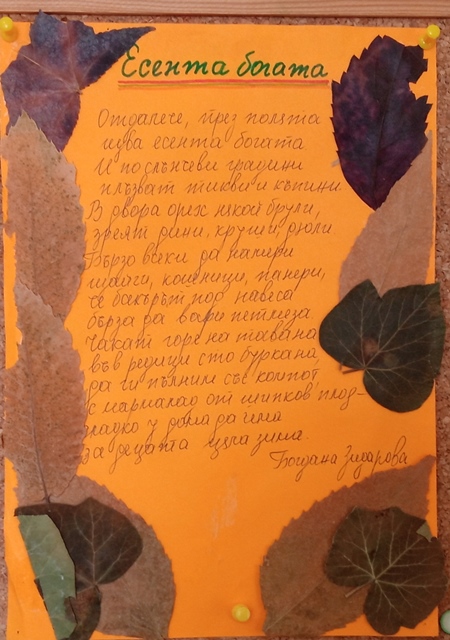 Есента богата
Отдалече, през полята
идва есента богата
И по слънчеви градини
плъзват тикви и къпини
В двора орех някой брули,
зреят дини, круши, дюли
Бързо всеки да намери
щайги, кошници, панери,
че бакърът под навеса
бърза да вари петмеза.
Чакат горе на тавана
във редици сто буркана,
да ги пълним със компот,
с мармалад от шипков плод–
сладко у дома да има
за децата цяла зима.
Богдана Зидарова